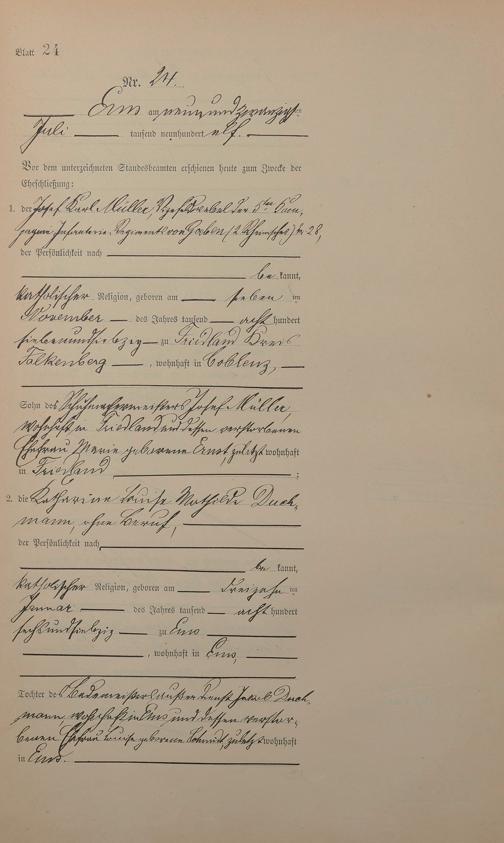 Blatt 24
Nr. 24.
Ems am neunundzwanzigsten
Juli tausend neunhundert elf.
Vor dem unterzeichneten Standesbeamten erschienen heute zum Zwecke der
Eheschließung:
1. der Josef Karl Müller, Vizefeldwebel der 5ten Com-
pagnie Infanterie Regiments von Goeben (2. Rheinisches) Nr 28,
der Persönlichkeit nach
be kannt,
katholischer Religion, geboren am sieben ten
November des Jahres tausend acht hundert
siebenundsiebzig zu Friedland Kreis
Falkenberg, wohnhaft in Coblenz,
Sohn des Schuhmachermeisters Josef Müller,
wohnhaft in Friedland und dessen verstorbenen
Ehefrau Marie geborene Ernst, zuletzt wohnhaft
in Friedland ;
2. die Katharine Louise Mathilde Duch-
mann, ohne Beruf,
der Persönlichkeit nach
be kannt,
katholischer Religion, geboren am dreizehn ten
Januar des Jahres tausend acht hundert
sechsundsiebzig zu Ems
, wohnhaft in Ems,
Tochter des Bademeisters außer Dienst Jakob Duch-
mann, wohnhaft in Ems und dessen verstor-
benen Ehefrau Louise geborene Schmidt, zuletzt wohnhaft
in Ems.